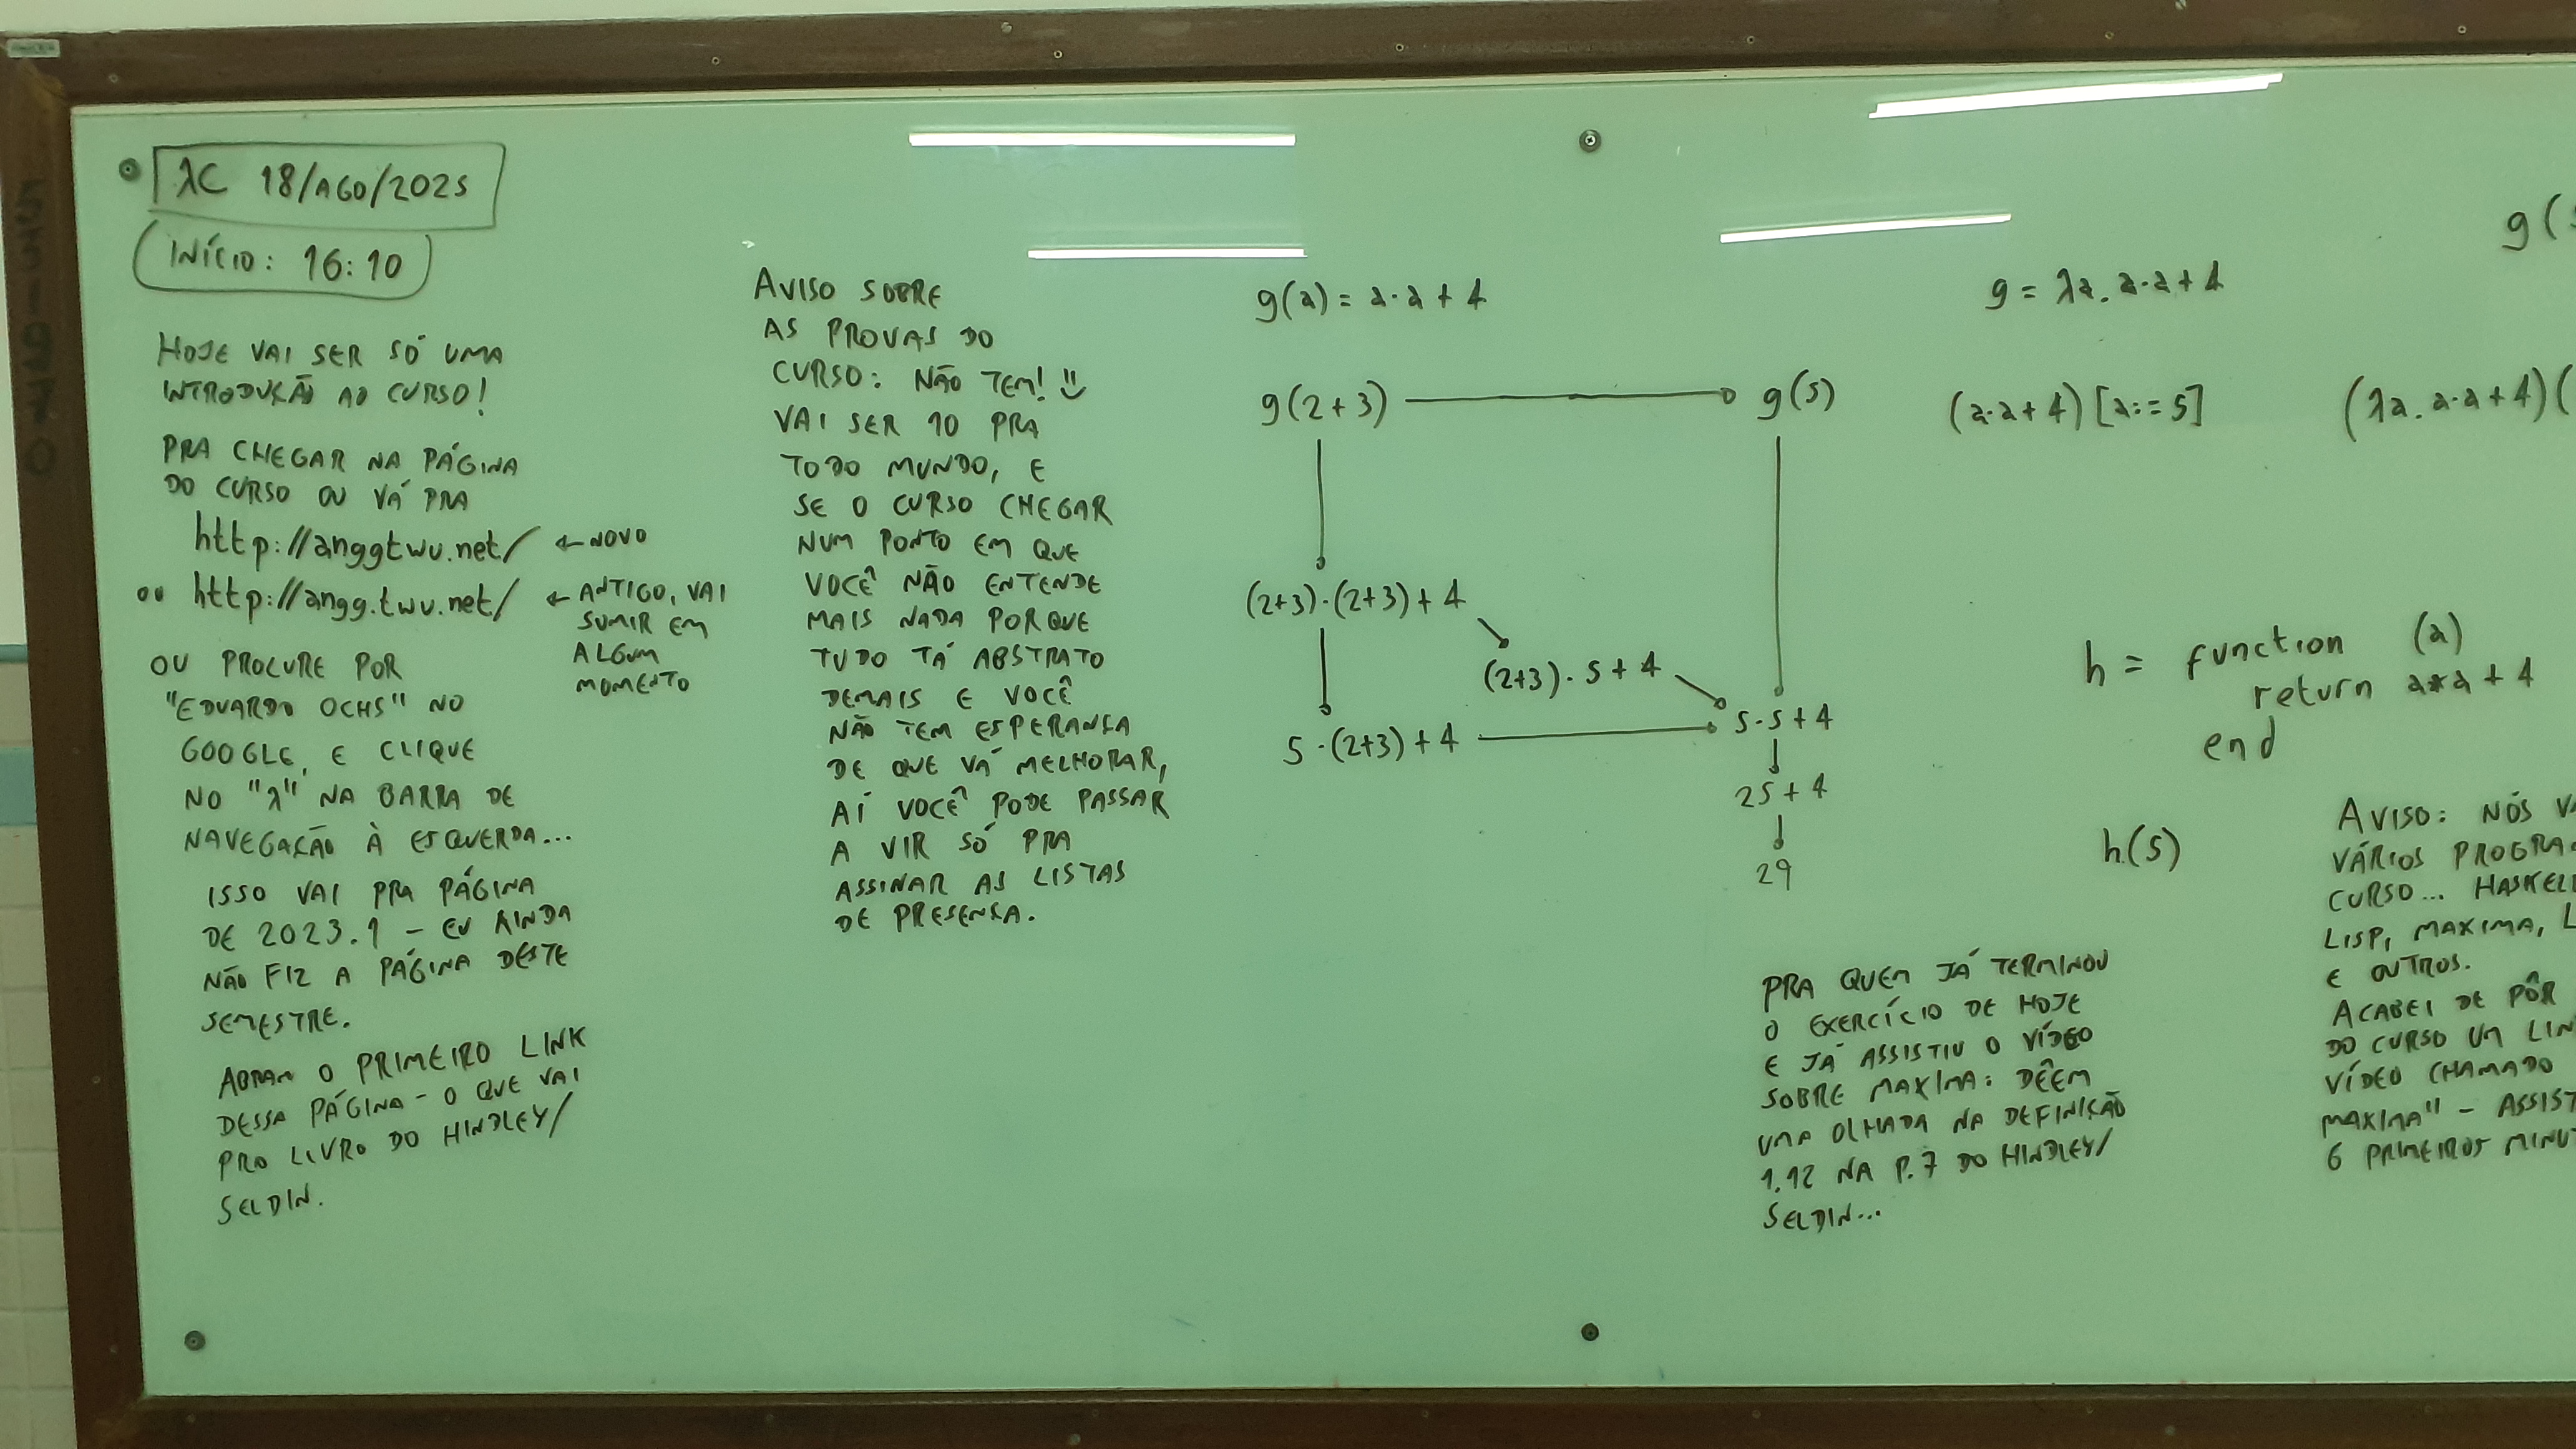 λC 18/AGO/2025
INÍCIO: 16:10
HOJE VAI SER SÓ UMA
INTRODUÇÃO AO CURSO!
PRA CHEGAR NA PÁGINA
DO CURSO OU VÁ PRA
http://anggtwu.net/ ← NOVO
OU http://angg.twu.net/ ← ANTIGO, VAI
SUMIR EM
ALGUM
MOMENTO
OU PROCURE POR
"EDUARDO OCHS" NO
GOOGLE, E CLIQUE
NO "λ" NA BARRA DE
NAVEGAÇÃO À ESQUERDA...
ISSO VAI PRA PÁGINA
DE 2023.1 – EU AINDA
NÃO FIZ A PÁGINA DESTE
SEMESTRE.
ABRAM O PRIMEIRO LINK
DESSA PÁGINA – O QUE VAI
PRO LIVRO DO HINDLEY/
SELDIN.
AVISO SOBRE
AS PROVAS DO
CURSO: NÃO TEM! :)
VAI SER 10 PRA
TODO MUNDO, E
SE O CURSO CHEGAR
NUM PONTO EM QUE
VOCÊ NÃO ENTENDE
MAIS NADA PORQUE
TUDO TÁ ABSTRATO
DEMAIS E VOCÊ
NÃO TEM ESPERANÇA
DE QUE VÁ MELHORAR,
AÍ VOCÊ PODE PASSAR
A VIR SÓ PRA
ASSINAR AS LISTAS
DE PRESENÇA.
g(a) = a·a + 4
g(2+3) g(5)
(2+3)·(2+3)+4
(2+3)·5+4
5·(2+3)+4 5·5+4
25+4
29
g = λa. a·a+4
g(
(a·a+4)[a:=5]
(λa. a·a+4)(
h = function (a)
return a*a+4
end
h(5)
PRA QUEM JÁ TERMINOU
O EXERCÍCIO DE HOJE
E JÁ ASSISTIU O VÍDEO
SOBRE MAXIMA: DÊEM
UMA OLHADA NA DEFINIÇÃO
1.12 NA P.7 DO HINDLEY/
SELDIN...
AVISO: NÓS
VÁRIOS
CURSO...
LISP, MAXIMA,
E OUTROS.
ACABEI DE PÔR
DO CURSO UM
VÍDEO CHAMADO
MAXIMA" –
6 PRIMEIROS